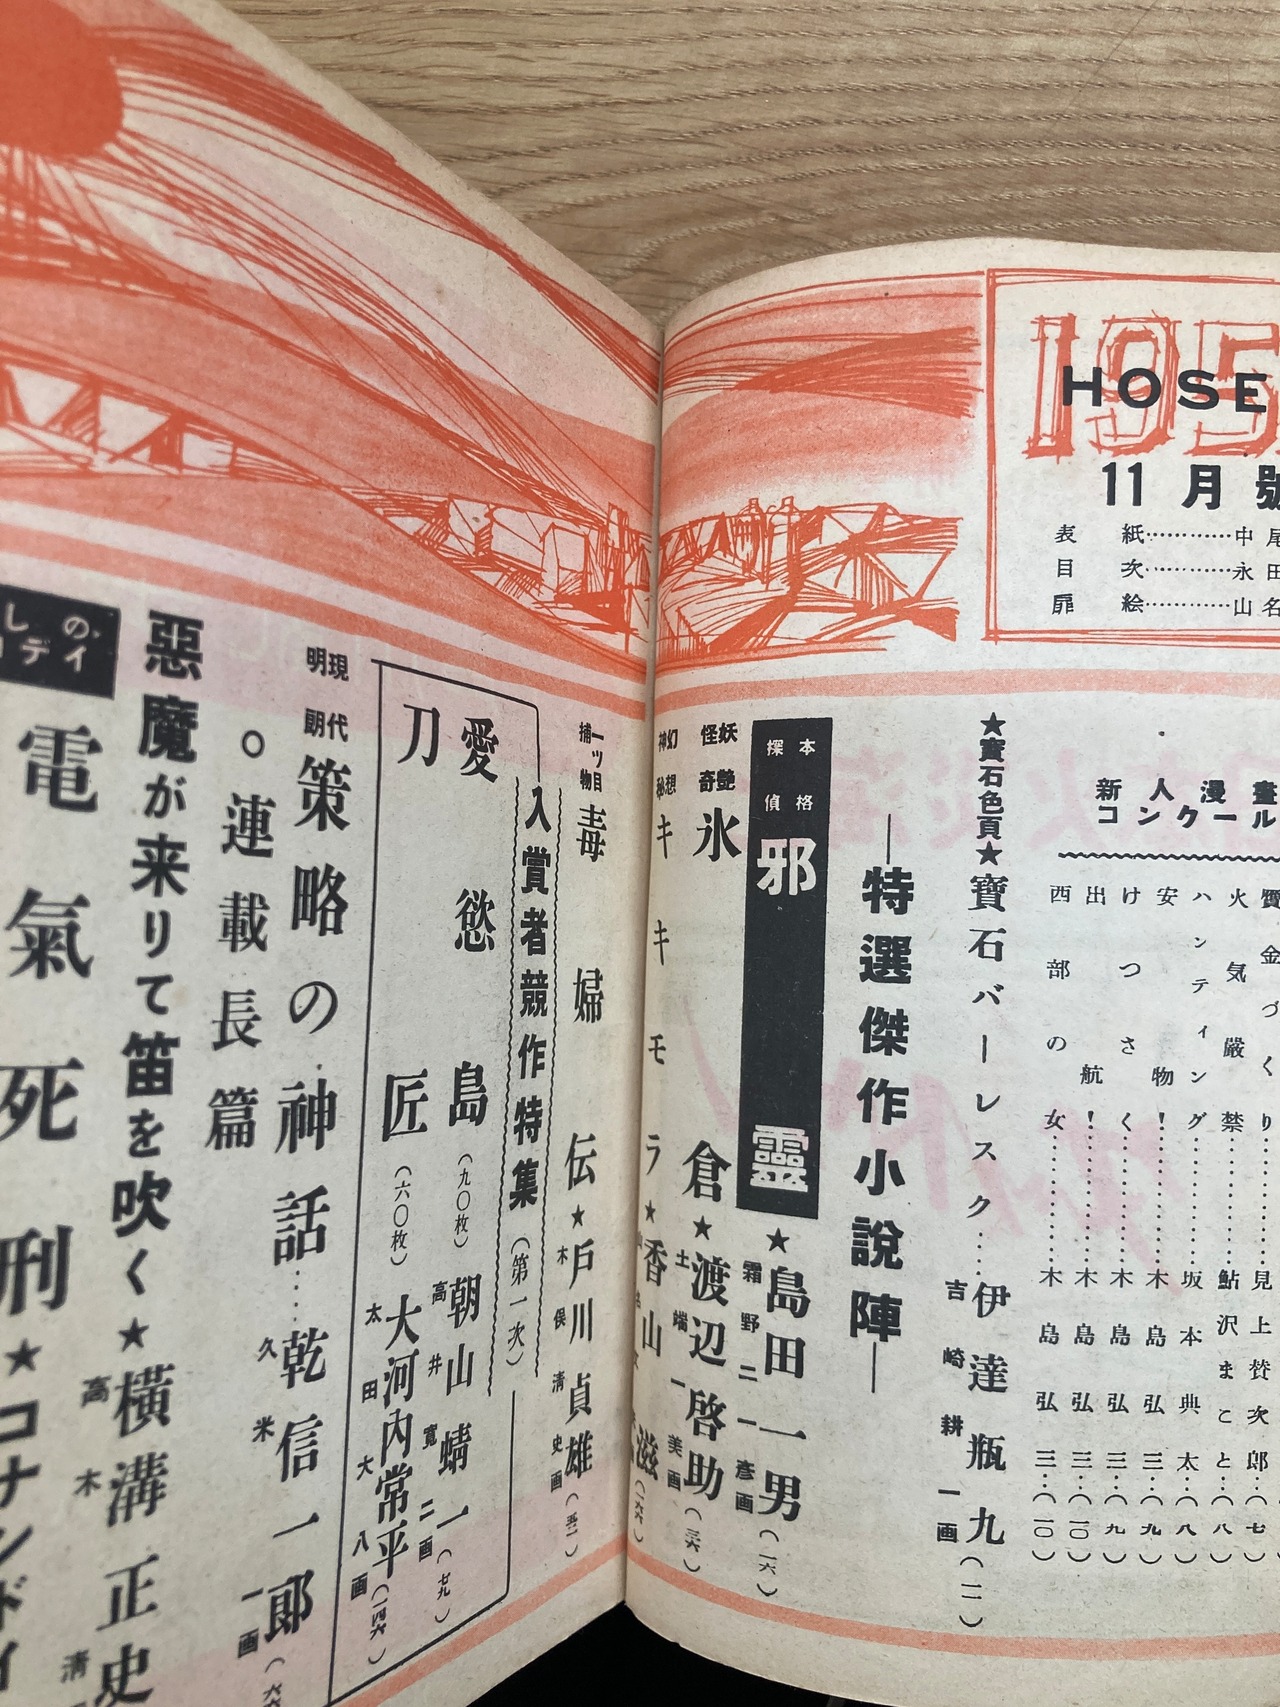 HOSE
11月號
表紙…………中尾
目次…………永田
扉絵…………山名
新人漫畫
コンクール
賣金づくり…………見上賛次郎…(七)
火気厳禁…………鮎沢まこと…(八)
ハンティング…………坂本典太…(八)
安物!…………木島弘三…(九)
けつさく…………木島弘三…(九)
出航!…………木島弘三…(一〇)
西部の女…………木島弘三…(一〇)
★寶石色頁★寶石バーレスク……伊達瓶九(一一)
吉崎耕一画
―特選傑作小說陣―
本格探偵 邪靈★島田一男(一六)
霜野二一彦画
妖艶怪奇 氷倉★渡辺啓助(三六)
土端一美画
幻想神秘 キキモラ★香山滋
一ツ目捕物 毒婦伝★戸川貞雄(五二)
木俣清史画
入賞者競作特集(第一次)
愛慾島(九〇枚)朝山蜻一(七九)
高井寛二画
刀匠(六〇枚)大河内常平(一四六)
太田大八画
現代明朗 策略の神話……乾信一郎
久米一画
○連載長篇
惡魔が来りて笛を吹く★橫溝正史
高木清
しの
デイ
電氣死刑★コナンドイ